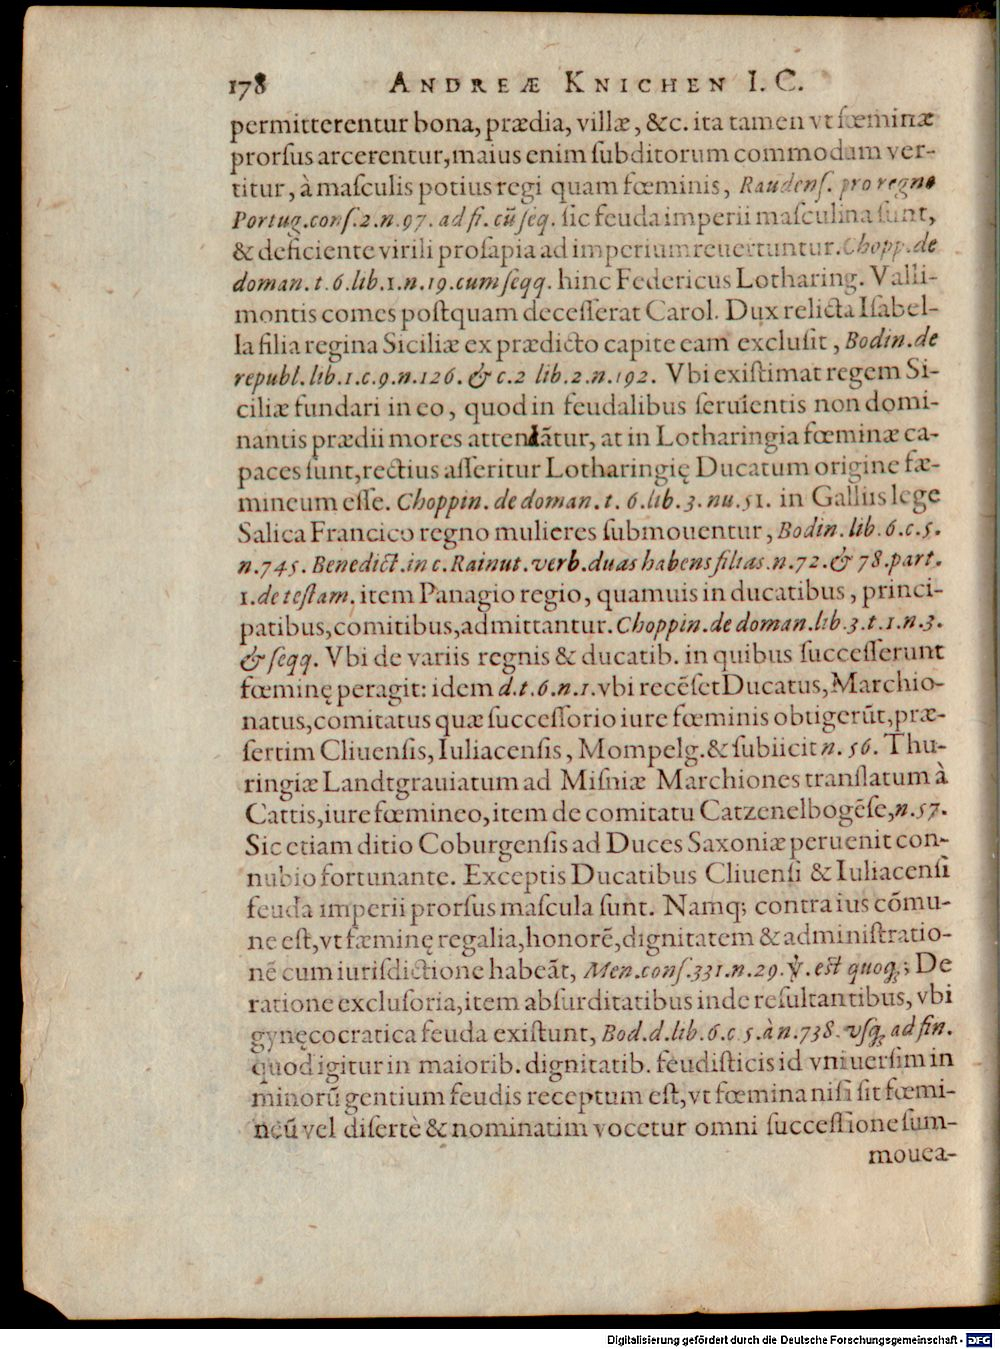 178 ANDREÆ KNICHEN I. C.
permitterentur bona, prædia, villæ, &c. ita tamen vt fœminæ
prorſus arcerentur, maius enim ſubditorum commodum ver-
titur, à maſculis potius regi quam fœminis, Raudenſ. pro regno
Portug. conſ. 2. n. 97. ad fi. cū ſeq. ſic feuda imperii maſculina ſunt,
& deficiente virili proſapia ad imperium reuertuntur. Chopp. de
doman. t. 6. lib. 1. n. 19. cum ſeqq. hinc Federicus Lotharing. Valli-
montis comes poſtquam deceſſerat Carol. Dux relicta Iſabel-
la filia regina Siciliæ ex prædicto capite eam excluſit, Bodin. de
republ. lib. 1. c. 9. n. 126. & c. 2 lib. 2. n. 192. Vbi exiſtimat regem Si-
ciliæ fundari in eo, quod in feudalibus ſeruientis non domi-
nantis prædii mores attendātur, at in Lotharingia fœminæ ca-
paces ſunt, rectius aſſeritur Lotharingię Ducatum origine fæ-
mineum eſſe. Choppin. de doman. t. 6. lib. 3. nu. 51. in Galliis lege
Salica Francico regno mulieres ſubmouentur, Bodin. lib. 6. c. 5.
n. 745. Benedict. in c. Rainut. verb. duas habens filias. n. 72. & 78. part.
1. de teſtam. item Panagio regio, quamuis in ducatibus, princi-
patibus, comitibus, admittantur. Choppin. de doman. lib. 3. t. 1. n. 3.
& ſeqq. Vbi de variis regnis & ducatib. in quibus ſucceſſerunt
fœminę peragit: idem d. t. 6. n. 1. vbi recēſet Ducatus, Marchio-
natus, comitatus quæ ſucceſſorio iure fœminis obtigerūt, præ-
ſertim Cliuenſis, Iuliacenſis, Mompelg. & ſubiicit n. 56. Thu-
ringiæ Landtgrauiatum ad Miſniæ Marchiones tranſlatum à
Cattis, iure fœmineo, item de comitatu Catzenelbogēſe, n. 57.
Sic etiam ditio Coburgenſis ad Duces Saxoniæ peruenit con-
nubio fortunante. Exceptis Ducatibus Cliuenſi & Iuliacenſi
feuda imperii prorſus maſcula ſunt. Namq; contra ius cōmu-
ne eſt, vt fæminę regalia, honorē, dignitatem & adminiſtratio-
nē cum iurisdictione habeāt, Men. conſ. 331. n. 29. ℣. eſt quoq; ; De
ratione excluſoria, item abſurditatibus inde reſultantibus, vbi
gynęcocratica feuda exiſtunt, Bod. d. lib. 6. c. 5. à n. 738. vſq; ad fin.
quod igitur in maiorib. dignitatib. feudiſticis id vniuerſim in
minorū gentium feudis receptum eſt, vt fœmina niſi ſit fœmi-
neū vel diſertè & nominatim vocetur omni ſucceſſione ſum-
mouea-
Digitalisierung gefördert durch die Deutsche Forschungsgemeinschaft - DFG